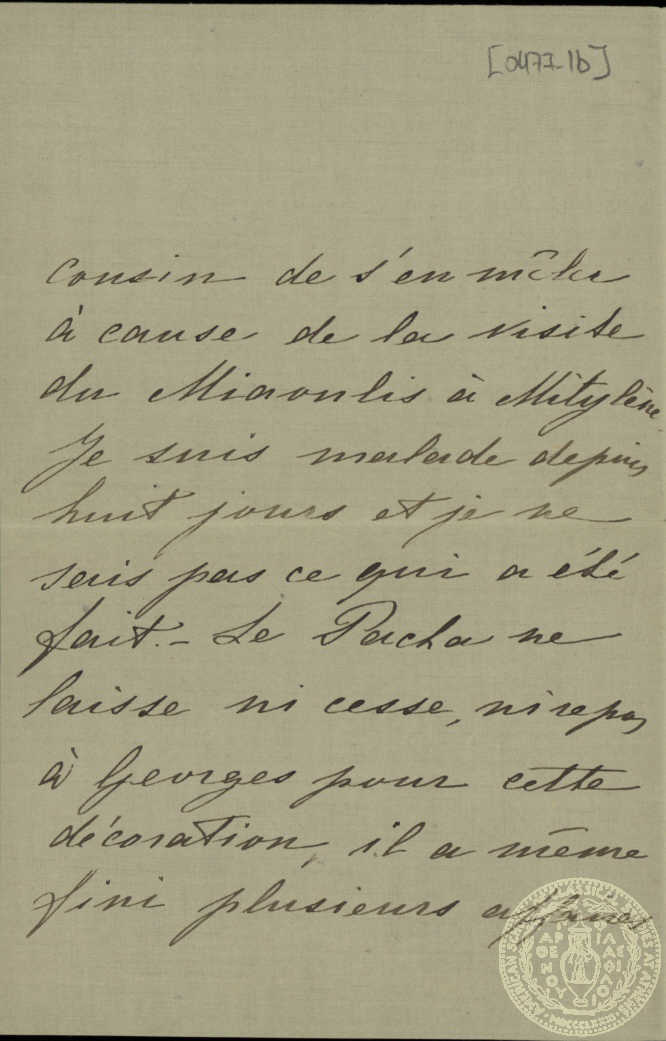 [0477-1b]
cousin de s'en mêler
à cause de la visite
du Miaoulis à Mitylène.
Je suis malade depuis
huit jours et je ne
sais pas ce qui a été
fait. - Le Pacha ne
laisse ni cesse, ni repos
à Georges pour cette
décoration, il a même
fini plusieurs affaires